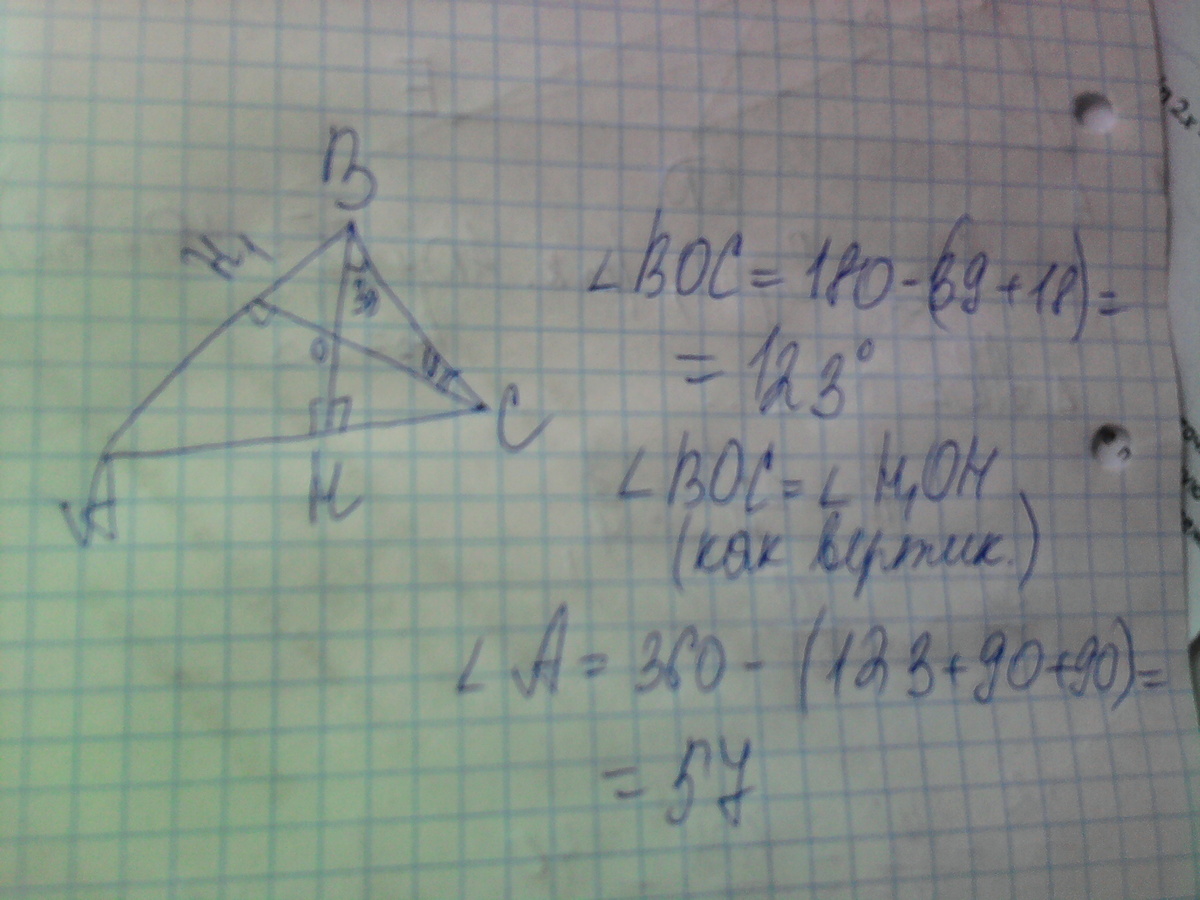 B
H₁
39
O
18
C
A
H
∠BOC = 180 - (39 + 18) =
= 123°
∠BOC = ∠H₁OH
(как вертик.)
∠A = 360 - (123 + 90 + 90) =
= 57